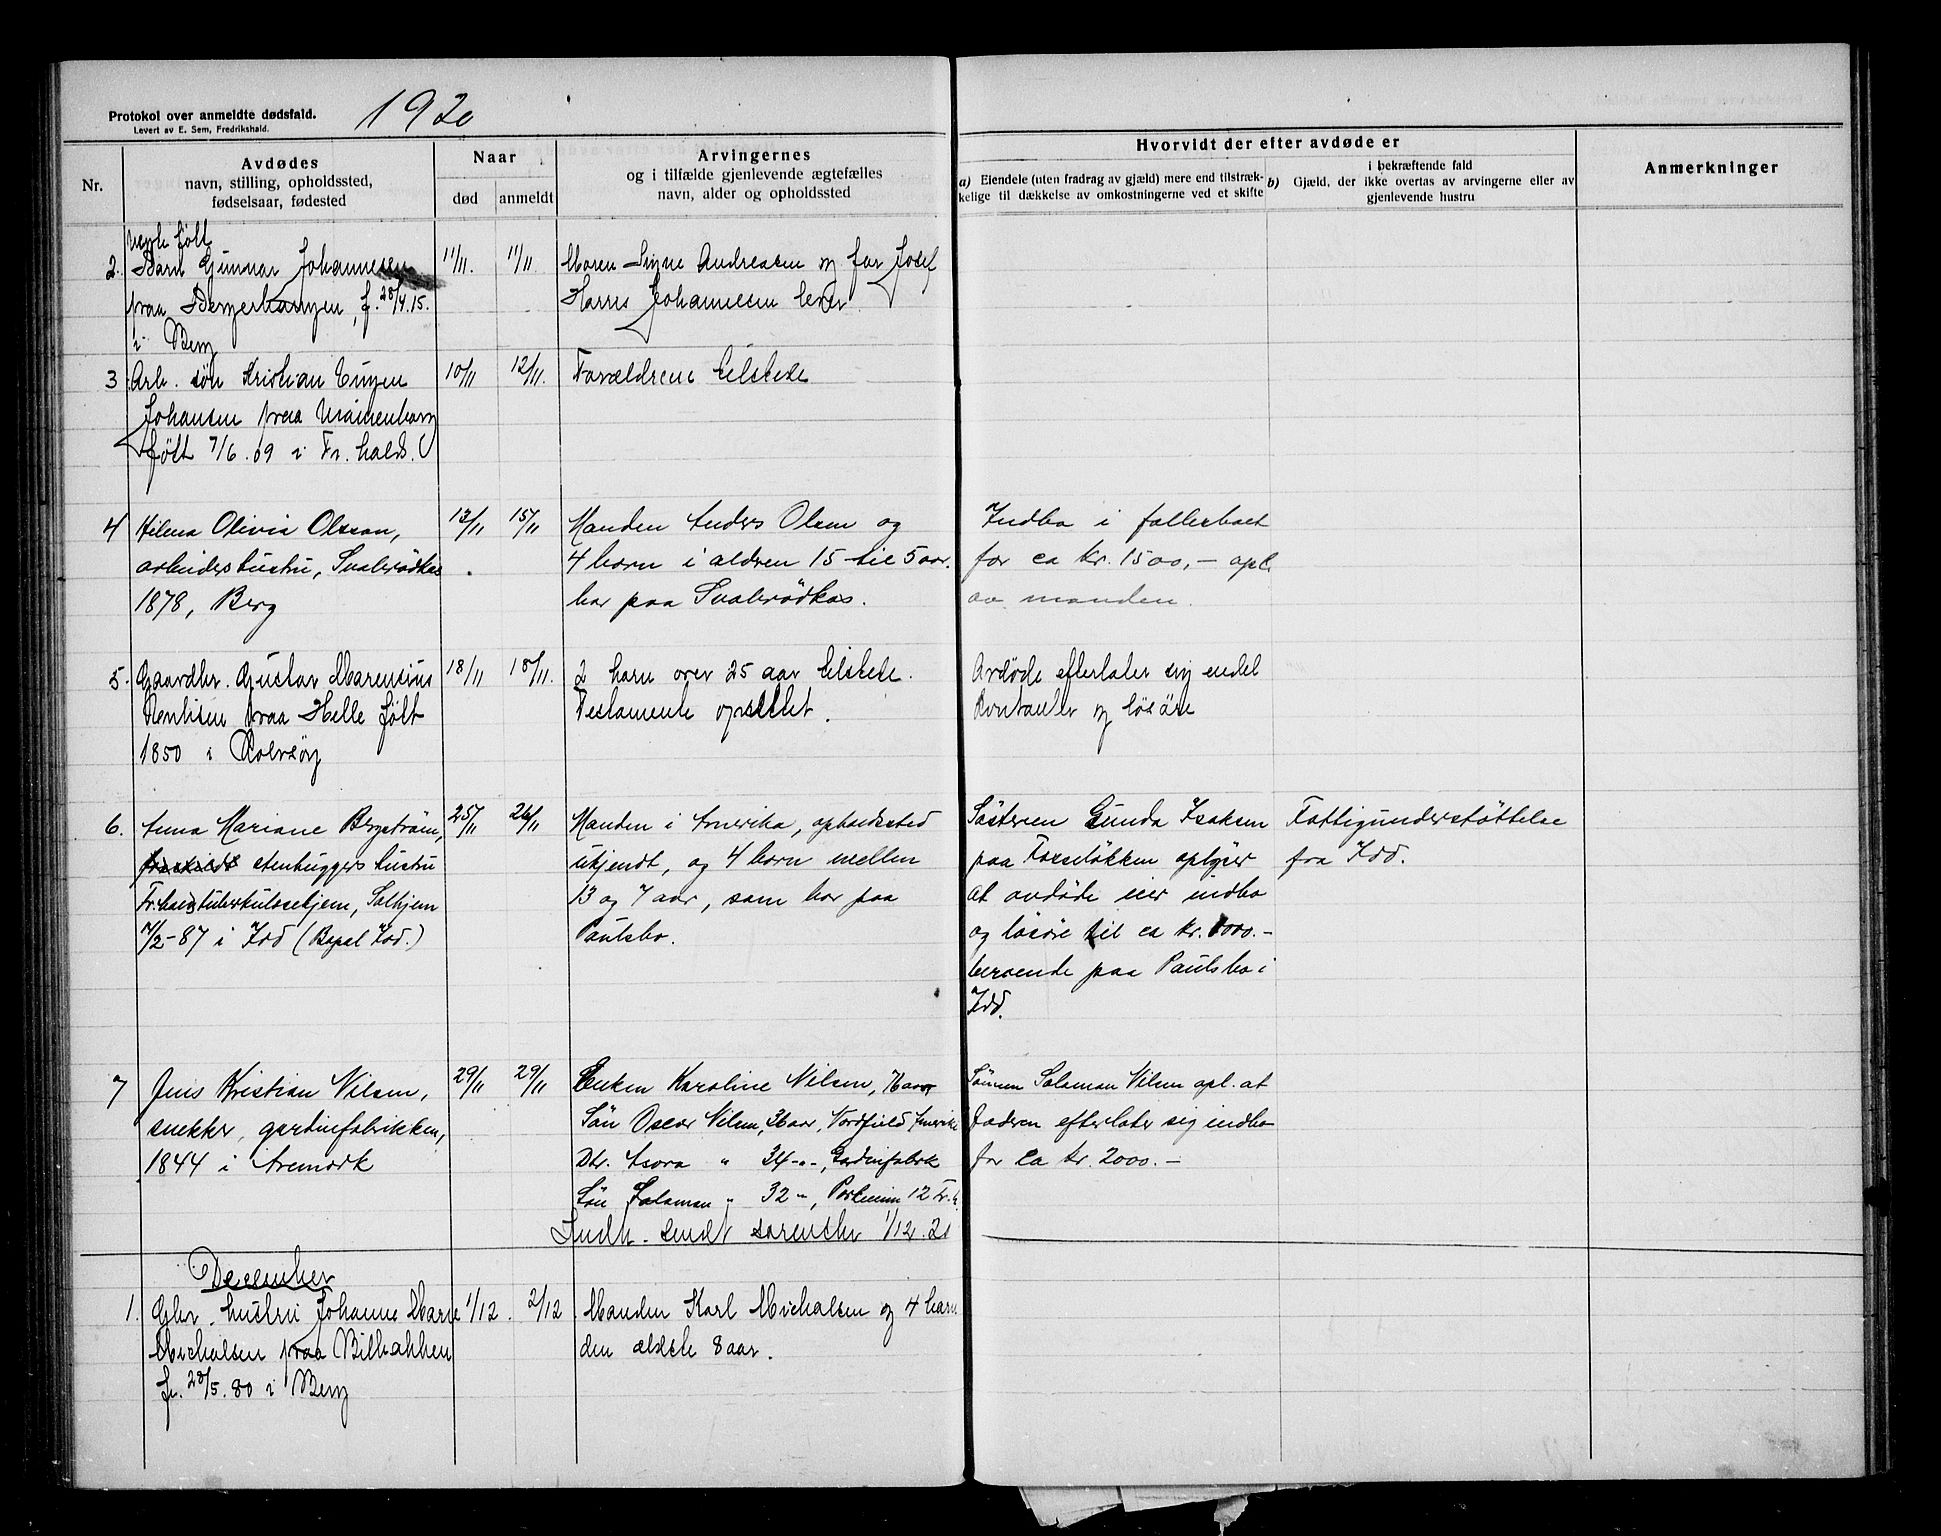 Protokol over anmeldte dødsfald.
Levert av E. Sem, Fredrikshald.
1920
Nr.
Avdødes
navn, stilling, opholdssted,
fødselsaar, fødested
Naar
død
anmeldt
Arvingernes
og i tilfælde gjenlevende ægtefælles
navn, alder og opholdssted
Hvorvidt der efter avdøde er
a) Eiendele (uten fradrag av gjæld) mere end tilstræk-
kelige til dækkelse av omkostningerne ved et skifte
b) Gjæld, der i bekræftende fald
ikke overtas av arvingerne eller av
gjenlevende hustru
Anmerkninger
født
2. Barn Gunnar Johannesen 11/11. 11/11. Moren Signe Andreasen og far Josef
paa Bergerhaugen, f. 28/4.15. Harris Johannesen lever.
i Berg
3 Arb. søn Kristian Eugen 10/11 12/11. Forældrene tilstede
Johansen paa
født 7/6.09 i Fr.hald.
4 Helena Olivia Olsson, 13/11 15/11 Manden Anders Olsen og Indbo i fællesboet
arbeiderhustru, Svalerødkas. 4 born i alderen 15 til 5 aar. for ca kr. 1500,- opl.
1878, Berg bor paa Svalerødkas. av manden.
5. Gaardbr. Gustav Marensius 18/11 18/11. 2 barn over 25 aar tilstede. Avdøde efterlater sig endel
paa Helle født Testamente oprettet. Kontanter og løsøre
1850 i Rolvsøy
6. Anna Mariane Bergstrøm, 25/11 26/11 Manden i Amerika, opholdssted Søsteren Gunda Isaksen Fattigunderstøttelse
stenhuggers hustru ukjendt, og 4 born mellem paa Torseløkken oplyser fra Idd.
Fr.halds tuberkulosehjem, Solhjem 13 og 7 aar, som bor paa at avdøde eier indbo
7/2-87 i Idd (Bopæl Idd.) Paulsbo. og løsøre til ca kr. 1000.-
beroende paa Paulsbo i
Idd.
7 Jens Kristian Nilsen, 29/11 29/11 Enken Karoline Nilsen, Sønnen Salamon Nilsen opl. at
snekker, gardinfabrikken, Søn Oscar Nilsen, 36 aar, Nordfield Amerika faderen efterlater sig indbo
1844 i Aremark Dtr. Asora " 34 -"-, Gardinfabrik for ca kr. 2000.-
Søn Salamon " 32 -", 12 Fr.h.
Indb. sendt sorenskr 1/12.20
December
1. Gbr. hustru Johanne Marie 1/12. 2/12 Manden Karl Michalsen og 4 barn
Michalsen paa Bilbakken den ældste 8 aar.
f. 28/5.80 i Berg